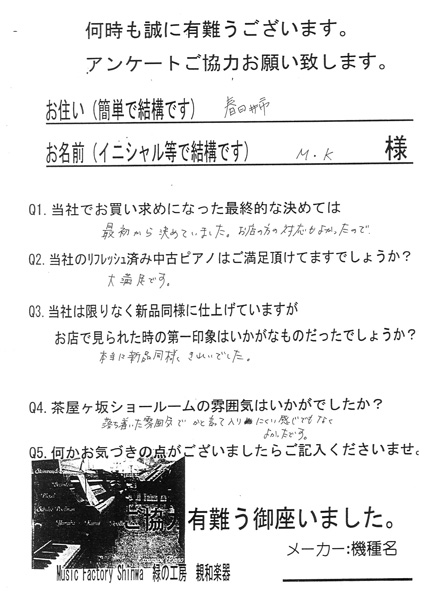 何時も誠に有難うございます。
アンケートご協力お願い致します。
お住い（簡単で結構です） 春日井市
お名前（イニシャル等で結構です） M.K 様
Q1. 当社でお買い求めになった最終的な決めては
最初から決めていました。お店の方の対応もよかったので。
Q2. 当社のﾘﾌﾚｯｼｭ済み中古ピアノはご満足頂けてますでしょうか？
大満足です。
Q3. 当社は限りなく新品同様に仕上げていますが
お店で見られた時の第一印象はいかがなものだったでしょうか？
本当に新品同様、きれいでした。
Q4. 茶屋ヶ坂ショールームの雰囲気はいかがでしたか？
落ち着いた雰囲気でかと言って入りにくい感じでもなく
よかったです。
Q5. 何かお気づきの点がございましたらご記入くださいませ。
ご協力有難う御座いました。
メーカー:機種名
Music Factory Shinwa 緑の工房 親和楽器